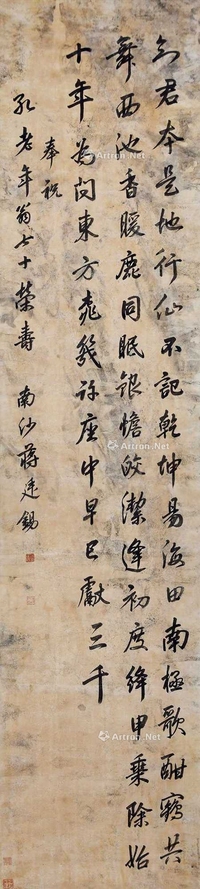 知君本是地行仙不記乾坤易海田南極歌酣鶴共
舞西池香暖鹿同眠銀憺皎潔逢初度絳甲乘除始
十年為問東方桃幾許座中早已獻三千
奉祝
孔老年翁七十榮壽
南沙蔣廷錫